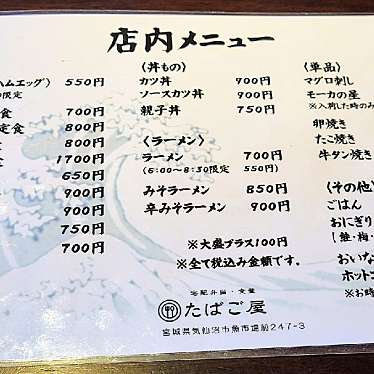 店内メニュー
ハムエッグ) 550円
限定)
食 700円
定食 800円
食 800円
1700円
650円
900円
900円
750円
700円
〈丼もの〉
カツ丼 900円
ソースカツ丼 900円
親子丼 750円
〈ラーメン〉
ラーメン 700円
(6:00~8:30限定 550円)
みそラーメン 850円
辛みそラーメン 900円
※大盛プラス100円
※全て税込み金額です。
〈単品〉
マグロ刺し
モーカの星
※入荷した時のみ
卵焼き
たこ焼き
牛タン焼き
〈その他〉
ごはん
おにぎり
[鮭・梅・
おいな
ホットコ
※お時
宅配弁当・食堂
たばご屋
宮城県気仙沼市魚市場前247-3